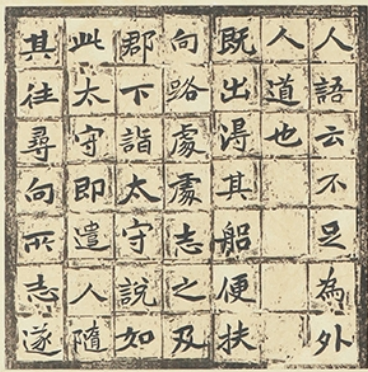 人語云不足為外
人道也
既出淂其船便扶
向路處處志之及
郡下詣太守說如
此太守即遣人隨
其往尋向所志遂